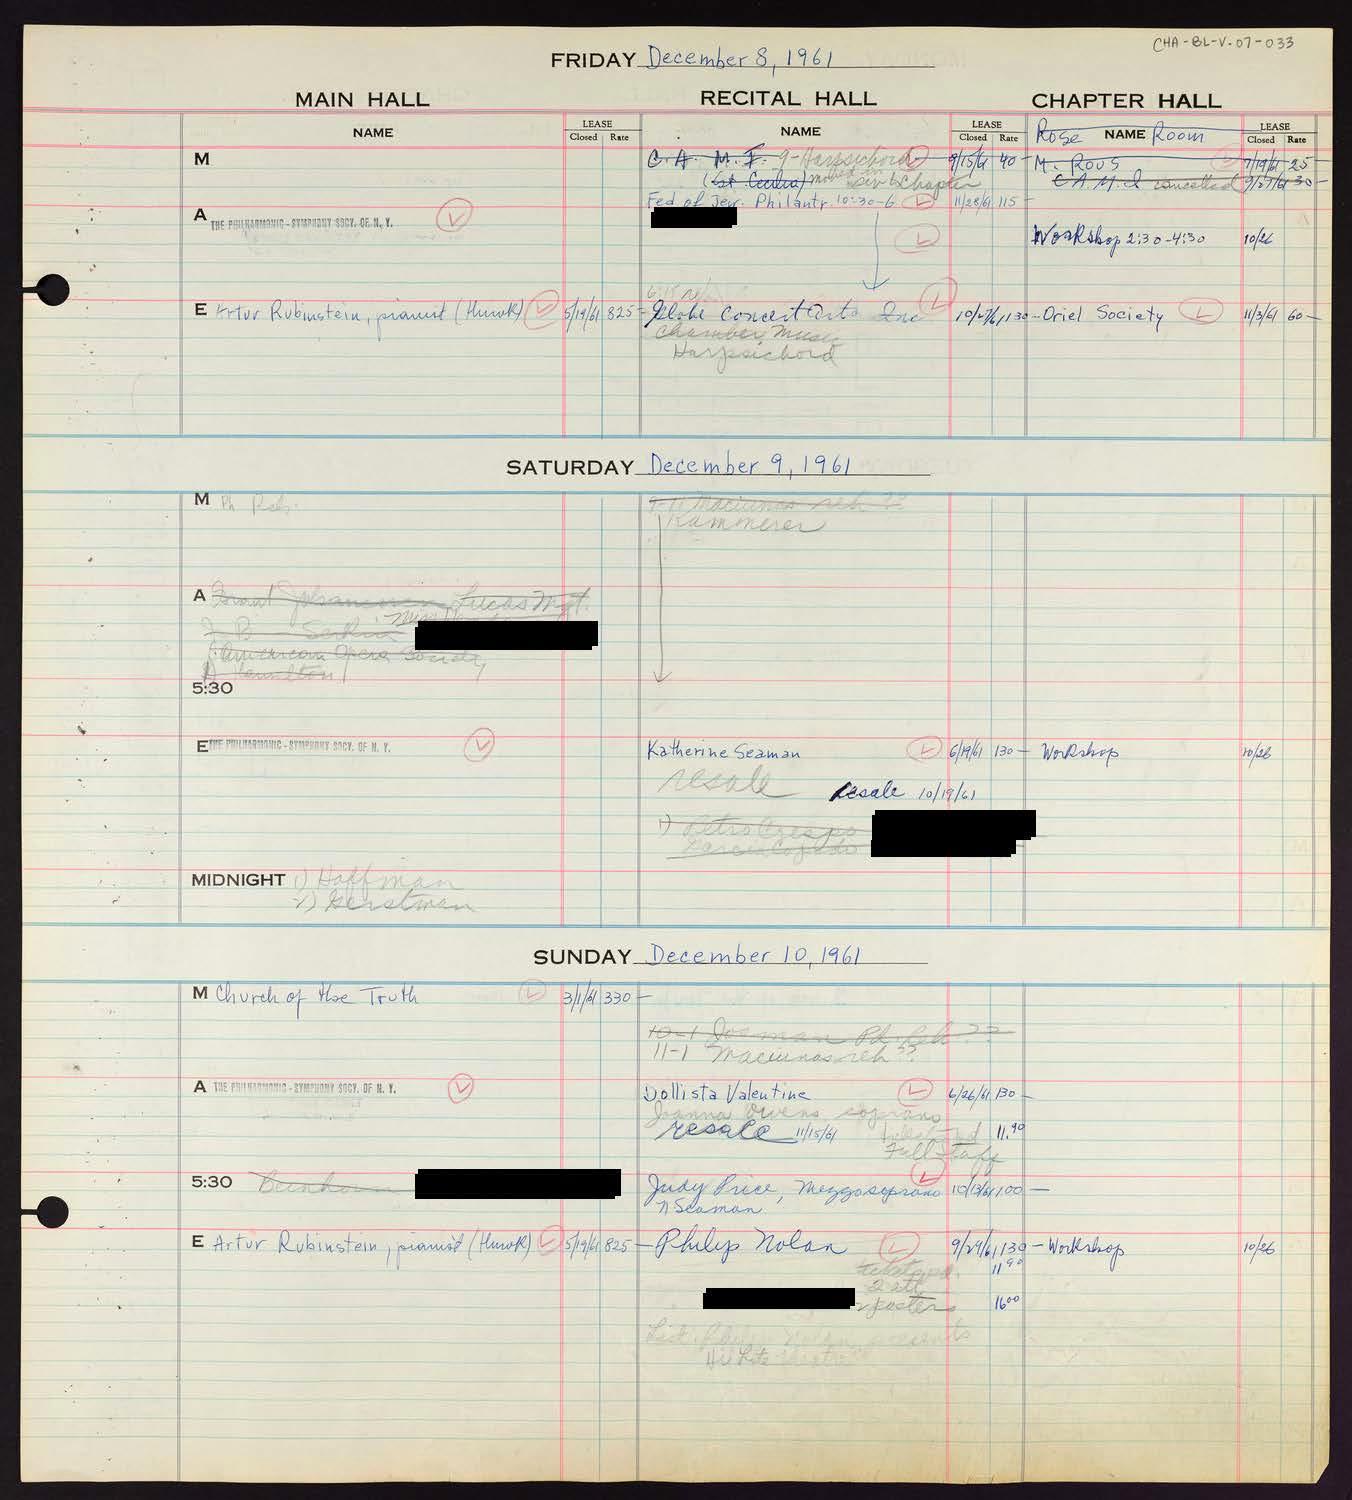 CHA-BL-V.07-033
FRIDAY December 8, 1961
MAIN HALL RECITAL HALL CHAPTER HALL
NAME LEASE Closed Rate NAME LEASE Closed Rate Rose NAME Room LEASE Closed Rate
M C. A. M. I. 9-Harpsichord 9/15/61 40- M. Rous 7/19/61 25-
(St. Cecilia) moved to Chapter C.A.M.I cancelled 9/27/61 30-
Fed of Jew. Philantr. 10:30-6 11/28/61 115-
A THE PHILHARMONIC-SYMPHONY SOCY. OF N.Y.
Workshop 2:30-4:30 10/26
E Artur Rubinstein, pianist (Hurok) 5/19/61 825- Globe Concert Inc 10/27/61 130- Oriel Society 11/3/61 60-
Chamber Music
Harpsichord
SATURDAY December 9, 1961
M Ph Reh. Maciunas reh ??
Kammerer
A Grant Johannesen Lucas Mgt.
Serkin
American Opera Society
Hamilton
5:30
E THE PHILHARMONIC-SYMPHONY SOCY. OF N. Y. Katherine Seaman 6/19/61 130- Workshop 10/26
resale
resale 10/19/61
1)
MIDNIGHT 1) Hoffman
2) Gerstman
SUNDAY December 10, 1961
M Church of the Truth 3/1/61 330-
10-1 Pd. Reh ??
11-1 Maciunas reh ??
A THE PHILHARMONIC-SYMPHONY SOCY. OF N. Y. Dollista Valentine 6/26/61 130-
Joanna Owens, soprano
resale 11/15/61 11.90
Full Staff
5:30 Judy Price, Mezzosoprano 10/13/61 100-
N Seaman
E Artur Rubinstein, pianist (Hurok) 5/19/61 825- Philip Nolan 9/29/61 130- Workshop 10/26
ticket pd. 11.90
2 att
posters 16.00
Philip Nolan presents